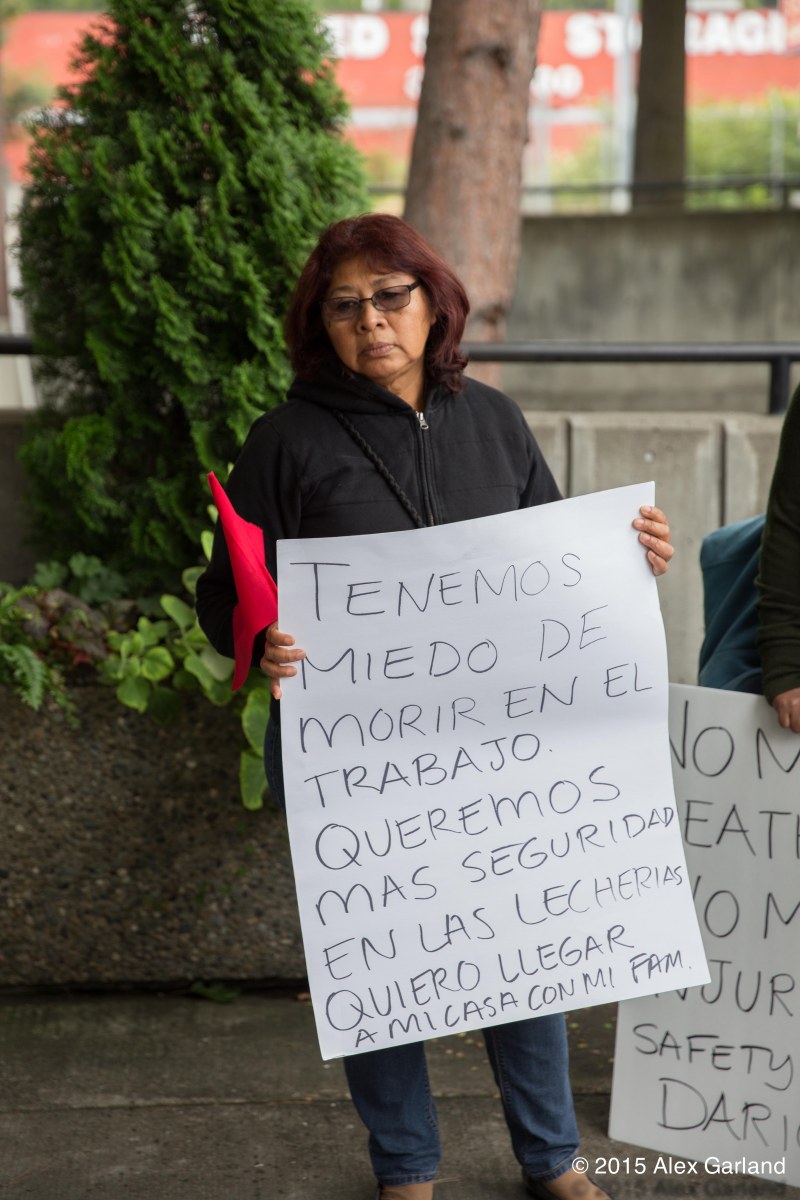 STORAGE
TENEMOS
MIEDO DE
MORIR EN EL
TRABAJO.
QUEREMOS
MAS SEGURIDAD
EN LAS LECHERIAS
QUIERO LLEGAR
A MI CASA CON MI FAM.
NO M
EATH
NO M
NJUR
SAFETY
DARI
© 2015 Alex Garland